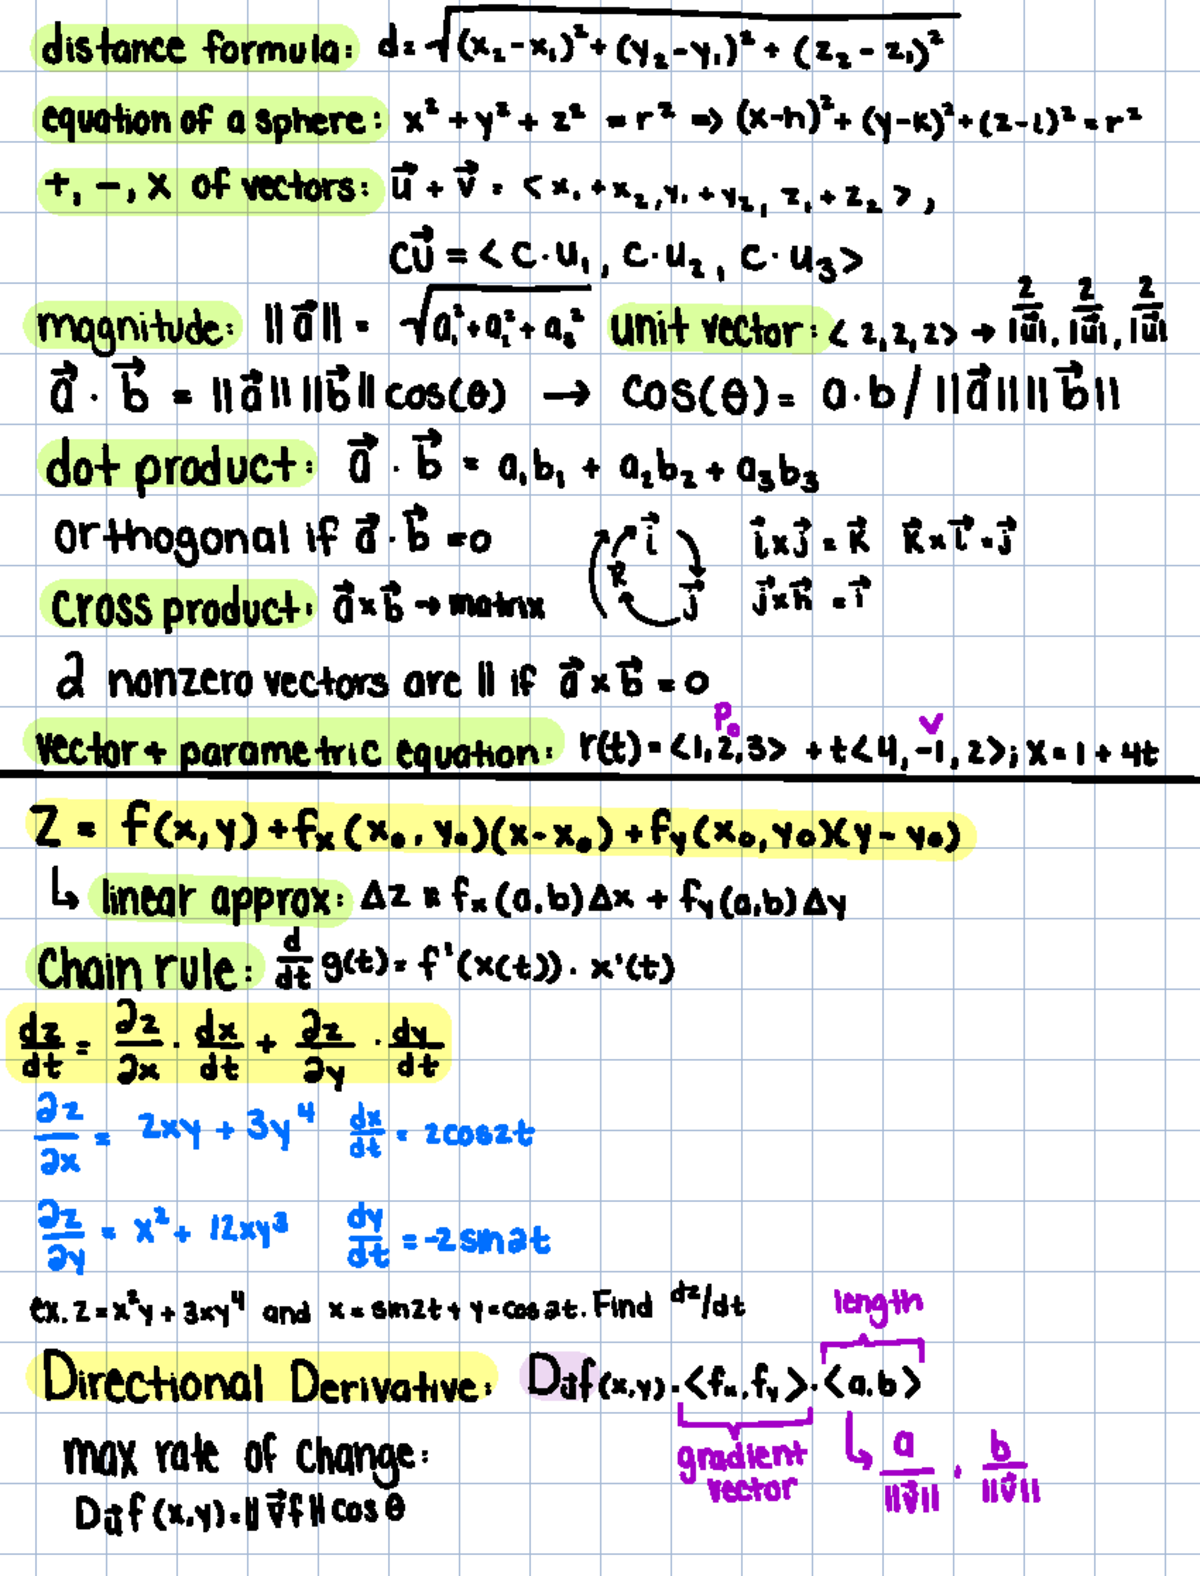 distance formula: d = √(x₂-x₁)² + (y₂-y₁)² + (z₂-z₁)²
equation of a sphere: x² + y² + z² = r² => (x-h)² + (y-k)² + (z-l)² = r²
+, -, x of vectors: u⃗ + v⃗ = <x₁+x₂, y₁+y₂, z₁+z₂>,
cu⃗ = <c·u₁, c·u₂, c·u₃>
magnitude: ||a⃗|| = √a₁²+a₂²+a₃² unit vector: <2,2,2> → 2/|u⃗|, 2/|u⃗|, 2/|u⃗|
a⃗ · b⃗ = ||a⃗|| ||b⃗|| cos(θ) → cos(θ) = a·b / ||a⃗|| ||b⃗||
dot product: a⃗ · b⃗ = a₁b₁ + a₂b₂ + a₃b₃
orthogonal if a⃗ · b⃗ = 0
i⃗ k j⃗
i⃗ x j⃗ = k⃗ k⃗ x i⃗ = j⃗
cross product: a⃗ x b⃗ → matrix
j⃗ x k⃗ = i⃗
2 nonzero vectors are || if a⃗ x b⃗ = 0
P₀ v
vector + parametric equation: r(t) = <1,2,3> + t<4,-1,2>; x = 1 + 4t
z = f(x,y) + fₓ(x₀,y₀)(x-x₀) + fᵧ(x₀,y₀)(y-y₀)
↳ linear approx: Δz ≈ fₓ(a,b)Δx + fᵧ(a,b)Δy
Chain rule: d/dt g(t) = f'(x(t)) · x'(t)
dz/dt = ∂z/∂x · dx/dt + ∂z/∂y · dy/dt
∂z/∂x = 2xy + 3y⁴ dx/dt = 2cos2t
∂z/∂y = x² + 12xy³ dy/dt = -2sin2t
ex. z = x²y + 3xy⁴ and x = sin2t + y = cos2t. Find dz/dt
length
Directional Derivative: Du⃗f(x,y) = <fₓ,fᵧ> · <a,b>
gradient vector
↳ a/||v⃗|| , b/||v⃗||
max rate of change:
Du⃗f(x,y) = ||∇⃗f|| cos θ